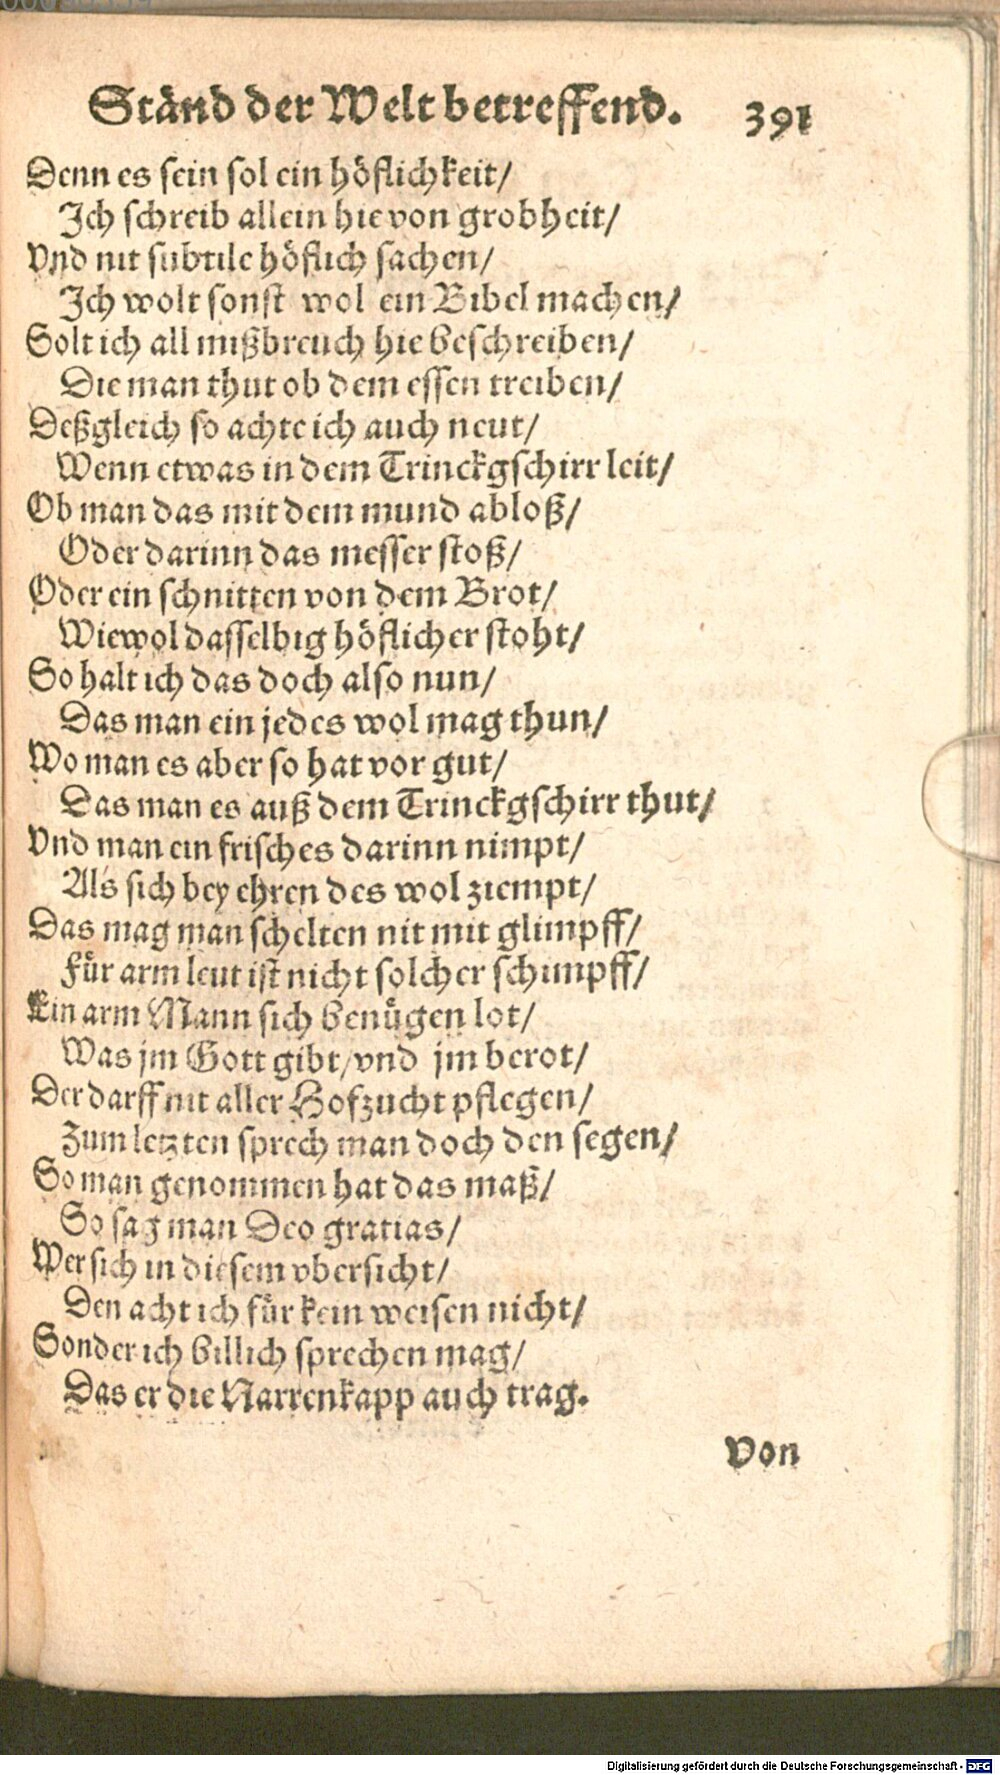 Ständ der Welt betreffend. 391
Denn es sein sol ein höflichkeit/
Ich schreib allein hie von grobheit/
Vnd nit subtile höflich sachen/
Ich wolt sonst wol ein Bibel machen/
Solt ich all mißbreuch hie beschreiben/
Die man thut ob dem essen treiben/
Deßgleich so achte ich auch neut/
Wenn etwas in dem Trinckgschirr leit/
Ob man das mit dem mund abloß/
Oder darinn das messer stoß/
Oder ein schnitten von dem Brot/
Wiewol dasselbig höflicher stoht/
So halt ich das doch also nun/
Das man ein jedes wol mag thun/
Wo man es aber so hat vor gut/
Das man es auß dem Trinckgschirr thut/
Vnd man ein frisches darinn nimpt/
Als sich bey ehren des wol ziempt/
Das mag man schelten nit mit glimpff/
Für arm leut ist nicht solcher schimpff/
Ein arm Mann sich benügen lot/
Was jm Gott gibt/vnd jm berot/
Der darff nit aller Hofzucht pflegen/
Zum letzten sprech man doch den segen/
So man genommen hat das maß/
So sag man Deo gratias/
Wer sich in diesem vbersicht/
Den acht ich für kein weisen nicht/
Sonder ich billich sprechen mag/
Das er die Narrenkapp auch trag.
Von
Digitalisierung gefördert durch die Deutsche Forschungsgemeinschaft - DFG